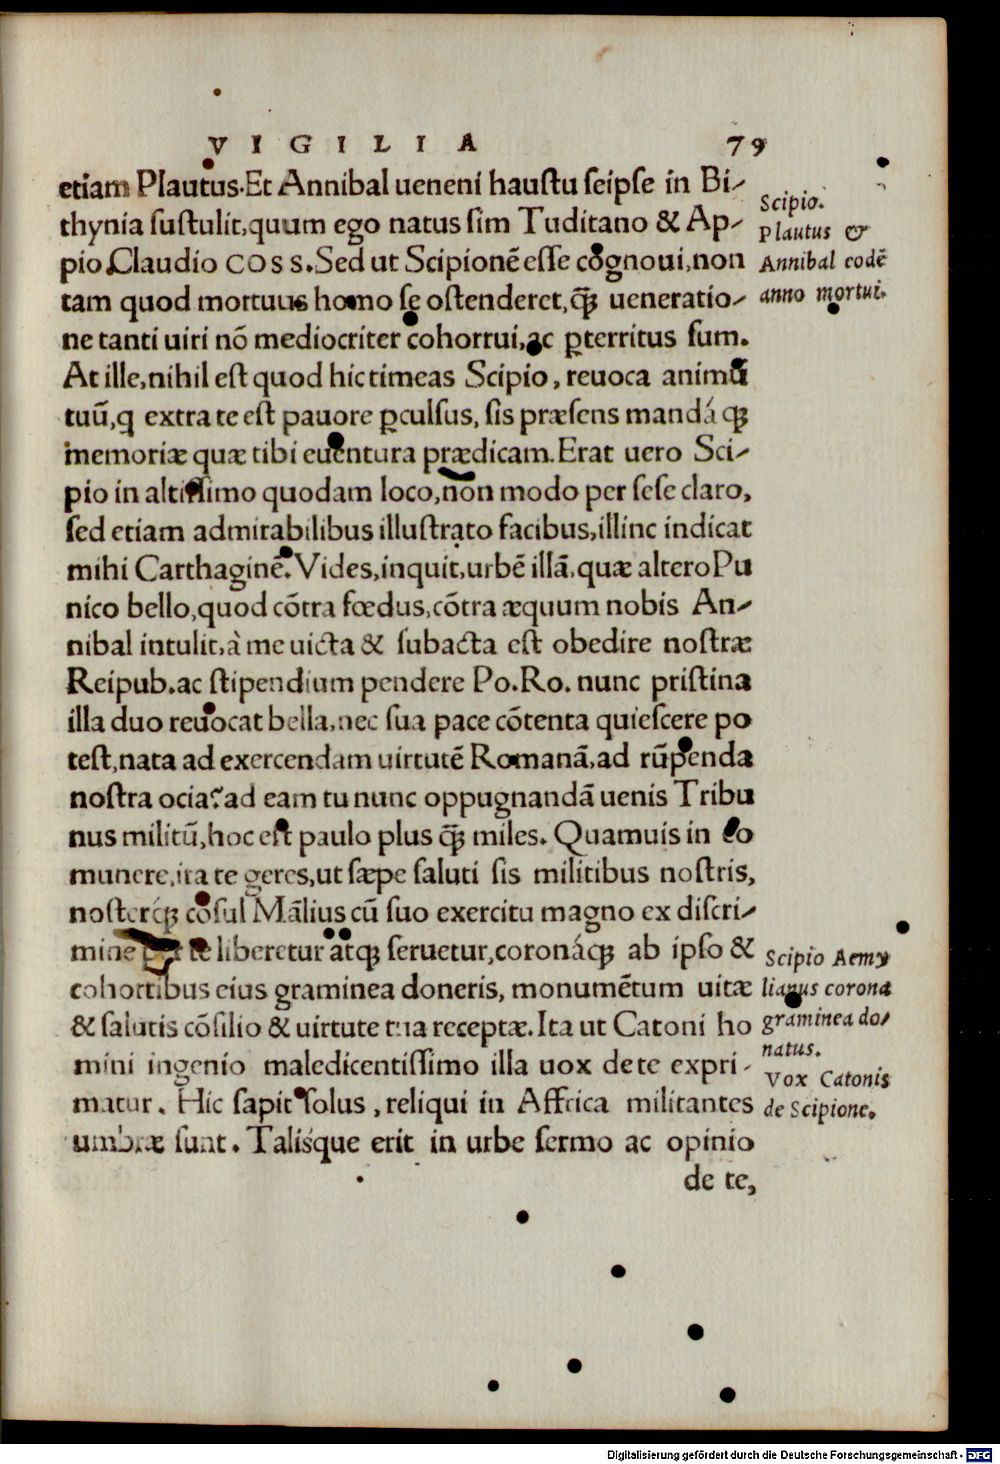 VIGILIA 79
etiam Plautus. Et Annibal ueneni haustu seipse in Bi-
thynia sustulit, quum ego natus sim Tuditano & Ap-
pio Claudio COSS. Sed ut Scipionē esse cognoui, non
tam quod mortuus homo se ostenderet, q̃ꝫ ueneratio-
ne tanti uiri nō mediocriter cohorrui, ac ꝑterritus sum.
At ille, nihil est quod hic timeas Scipio, reuoca animū
tuū, q extra te est pauore ꝑculsus, sis præsens mandáqꝫ
memoriæ quæ tibi euentura prædicam. Erat uero Sci-
pio in altissimo quodam loco, non modo per sese claro,
sed etiam admirabilibus illustrato facibus, illinc indicat
mihi Carthaginē. Vides, inquit, urbē illā, quæ altero Pu
nico bello, quod cōtra fœdus, cōtra æquum nobis An-
nibal intulit, à me uicta & subacta est obedire nostræ
Reipub. ac stipendium pendere Po. Ro. nunc pristina
illa duo reuocat bella, nec sua pace cōtenta quiescere po
test, nata ad exercendam uirtutē Romanā, ad rūpenda
nostra ocia? ad eam tu nunc oppugnandā uenis Tribu
nus militū, hoc est paulo plus q̃ꝫ miles. Quamuis in eo
munere, ita te geres, ut sæpe saluti sis militibus nostris,
nosterq́ꝫ cōsul Mālius cū suo exercitu magno ex discri-
mine per te liberetur atqꝫ seruetur, coronáqꝫ ab ipso &
cohortibus eius graminea doneris, monumētum uitæ
& salutis cōsilio & uirtute tua receptæ. Ita ut Catoni ho
mini ingenio maledicentissimo illa uox de te expri-
matur. Hic sapit solus, reliqui in Affrica militantes
umbræ sunt. Talisq́ue erit in urbe sermo ac opinio
de te,
Scipio.
Plautus &
Annibal eodē
anno mortui.
Scipio Aemy
lianus corona
graminea do/
natus.
Vox Catonis
de Scipione.
Digitalisierung gefördert durch die Deutsche Forschungsgemeinschaft - DFG